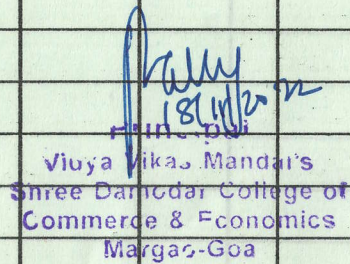 18/11/2022
Principal
Vidya Vikas Mandal's
Shree Damodar College of
Commerce & Economics
Margao-Goa